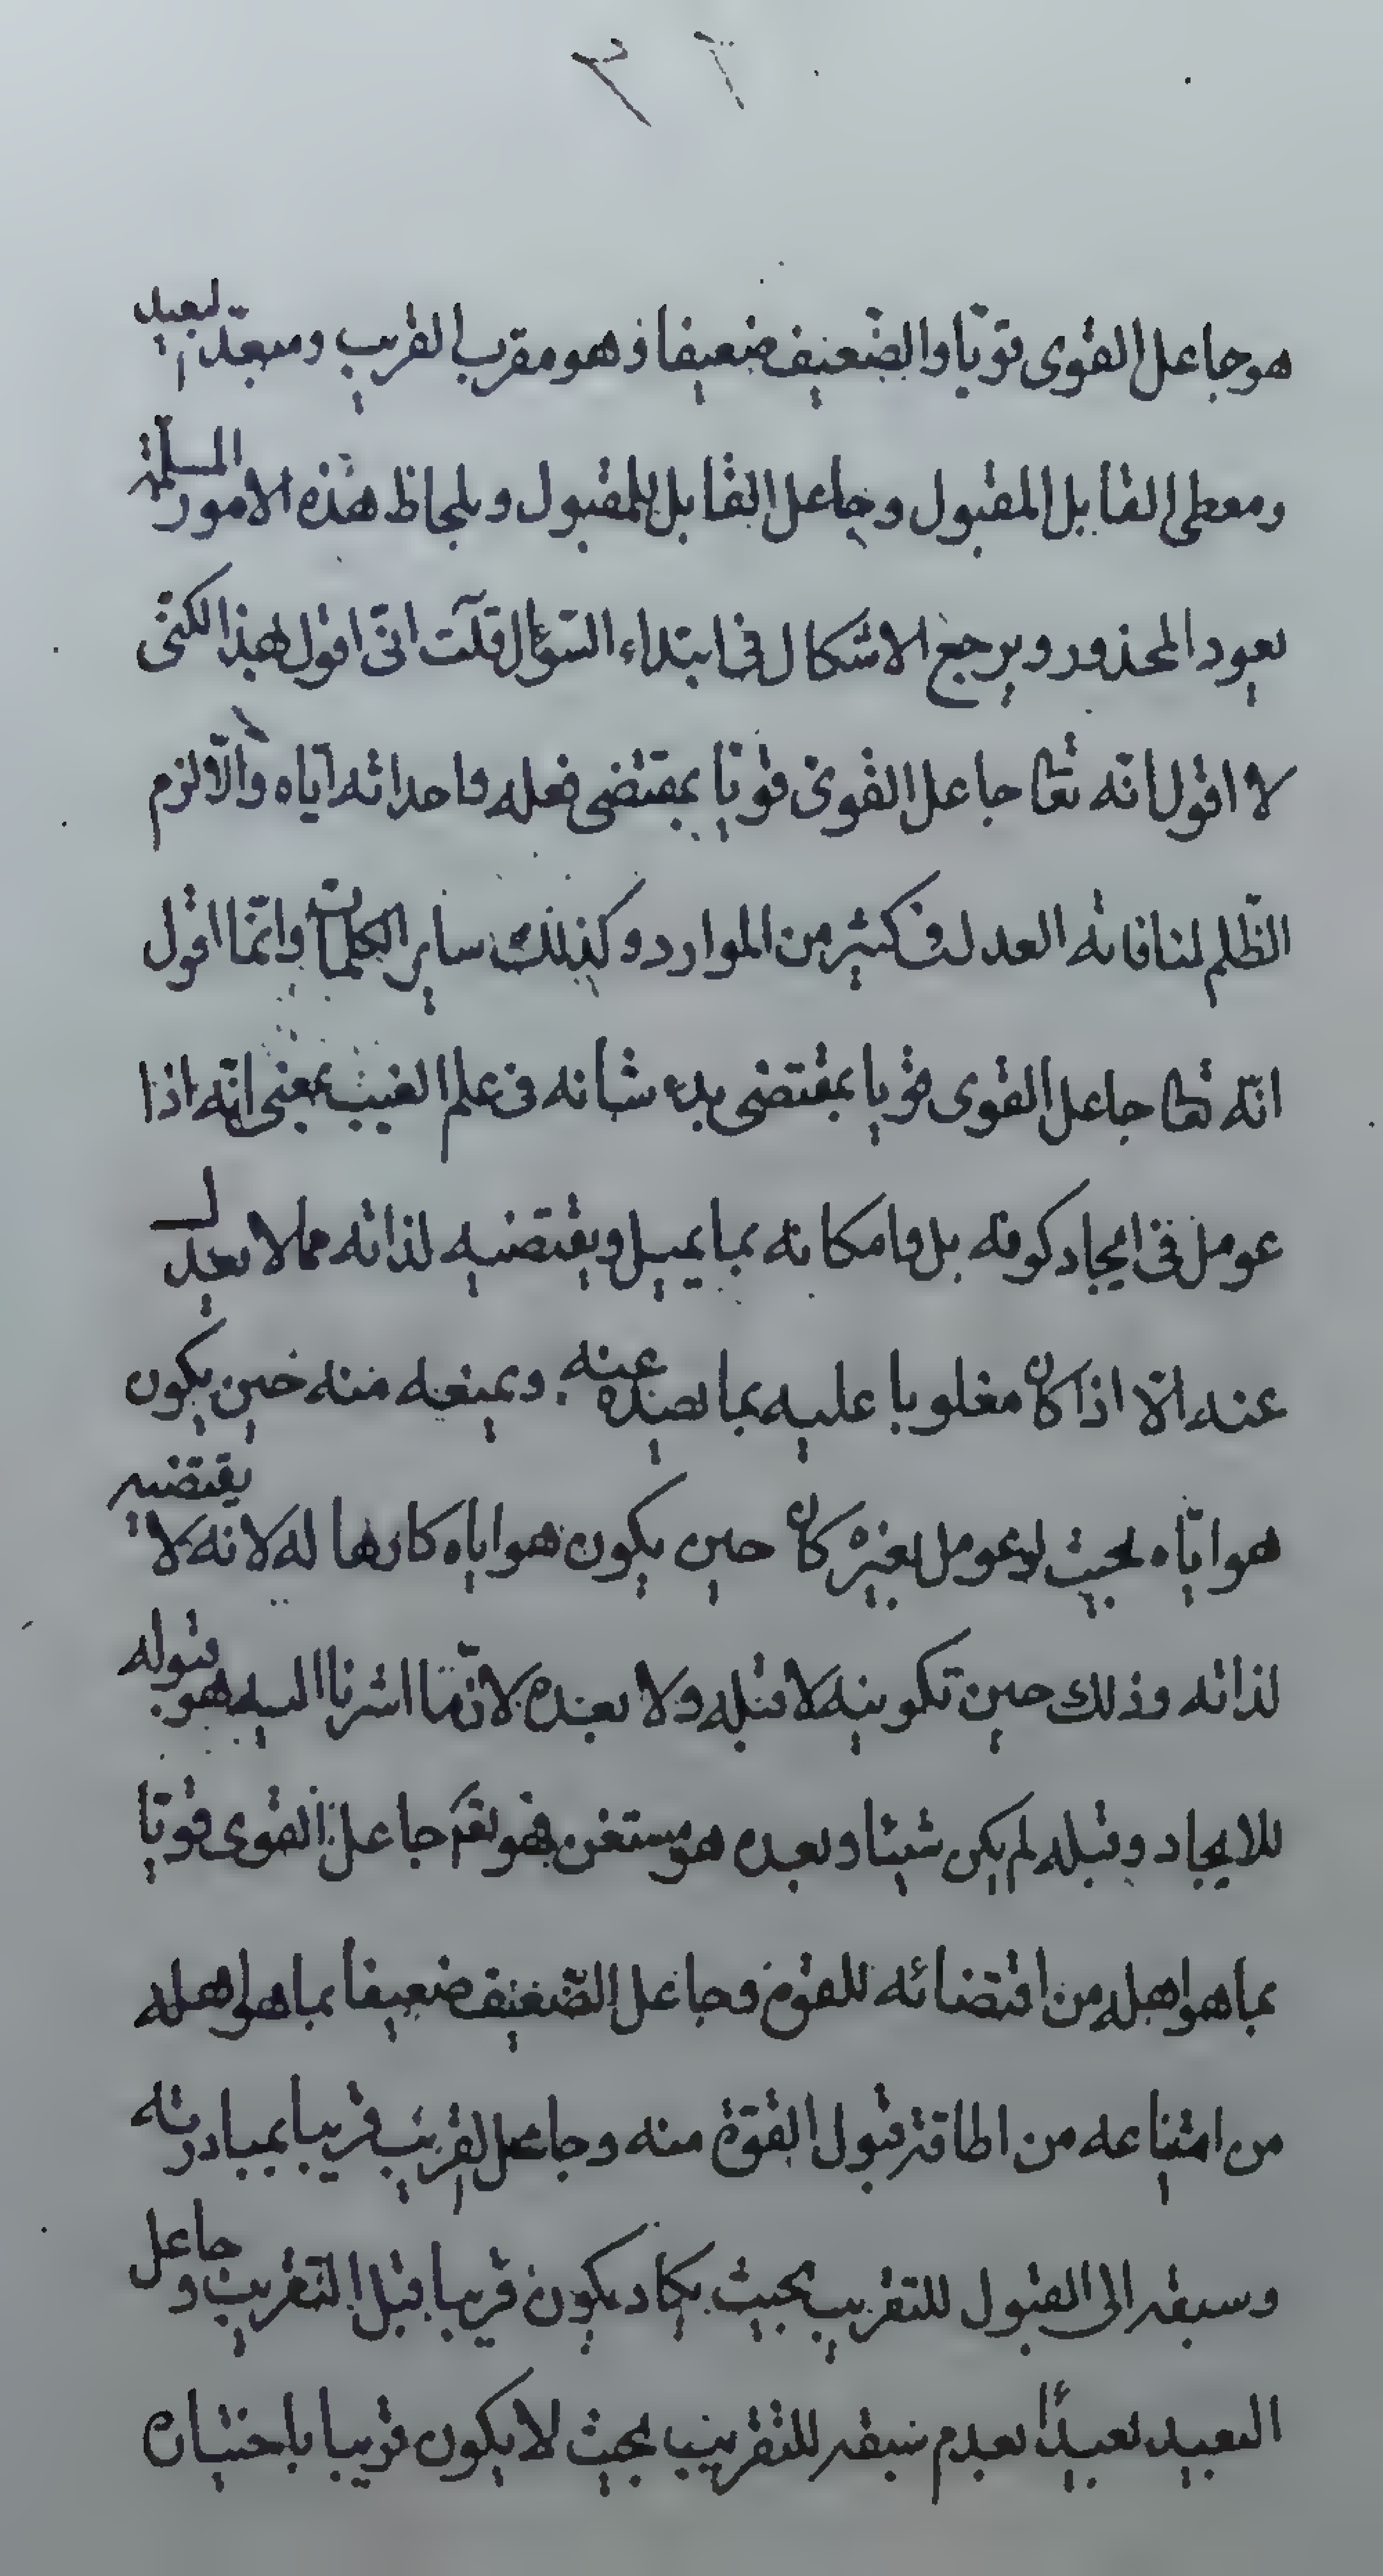 ٣٦
هو جاعل القوى قويّا والضّعيف ضعيفا اذ هو مقرب القريب ومبعّد البعيد
ومعطى القابل المقبول وجاعل القابل للمقبول وبلحاظ هذه الامور المسلمة
يعود المحذور ويرجع الاشكال فى ابتداء السّؤال قلت انّى اقول بهذا لكنّى
لا اقول انّه تعا جاعل القوى قويّا بمقتضى فعله واحداثه ايّاه والّا لزم
الظّلم لمنافاته العدل فى كثير من الموارد وكذلك ساير الكلمات وانّما اقول
انّه تعا جاعل القوى قويا بمقتضى بدء شانه فى علم الغيب بمعنى انّه اذا
عومل فى ايجاد كونه بل وامكانه بما يميل ويقتضيه لذاته مما لا يعدل
عنه الّا اذا كان مغلوبا عليه بما يصده عنه ويمنعه منه حين يكون
هو ايّاه بحيث لو عومل بغيره كان حين يكون هو اياه كارها له لانه لا يقتضيه
لذاته وذلك حين تكوينه لا قبله ولا بعده لانّ ما اشرنا اليه هو قبوله
للايجاد وقبله لم يكن شيئا وبعده هو مستغن فهو تعا جاعل القوى قويّا
بما هو اهله من اقتضائه للقوة وجاعل الضّعيف ضعيفا بما هو اهله
من امتناعه من اطاقة قبول القوّة منه وجاعل القريب قريبا بمبادرته
وسبقه الى القبول للتقريب بحيث يكاد يكون قريبا قبل التّقريب وجاعل
البعيد بعيداً بعدم سبقه للتقريب بحيث لا يكون قريبا باختياره